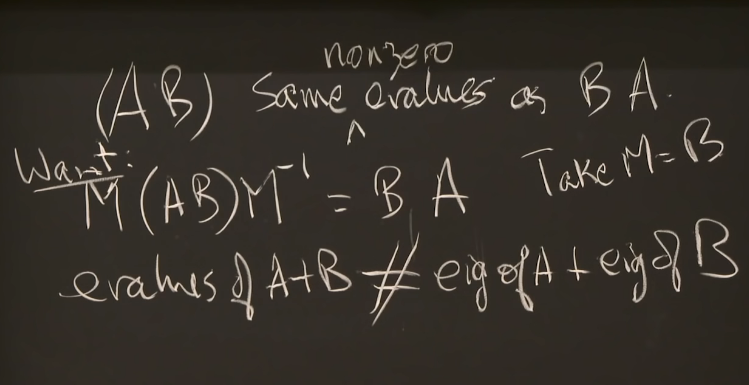 nonzero
(AB) same ^ evalues as BA.
Want:
M(AB)M⁻¹ = BA Take M=B
evalues of A+B ≠ eig of A + eig of B